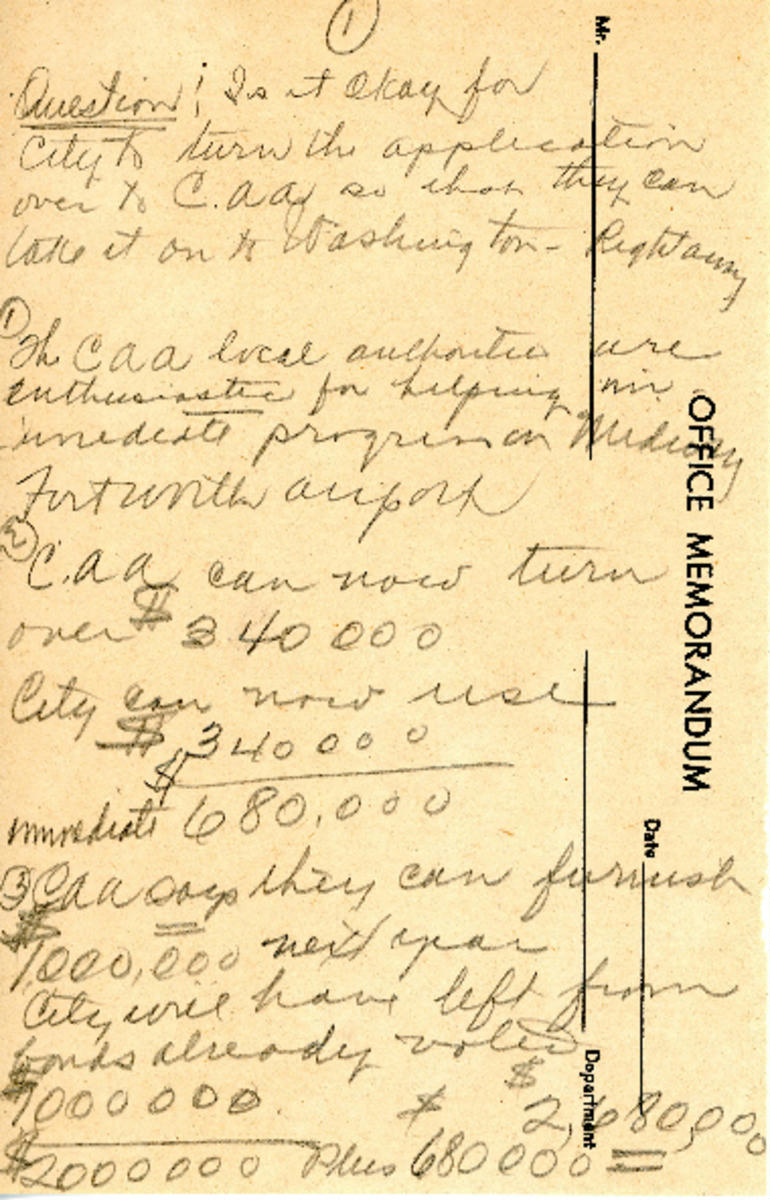 ①
Question! Is it Okay for
City to turn the application
over to C.A.A. so that they can
take it on to Washington - Right away
① The CAA local authorities are
enthusiastic for helping in
immediate program on Midway
Fort Worth airport
② C.A.A. can now turn
over $340000
City can now use
$340000
$
immediate 680,000
③ CAA says they can furnish
$1000,000 next year
City will have left from
bonds already voted
$1000000 $ 2,680,000
$2000000 Plus 680000 =
Mr.
OFFICE MEMORANDUM
Date
Department